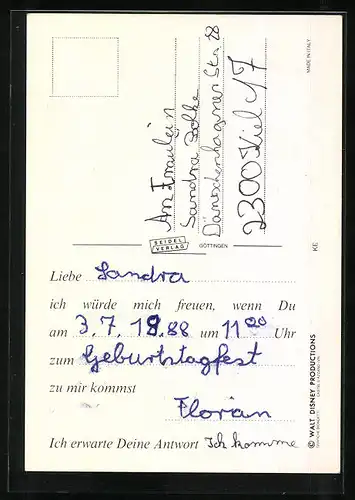 An Fräulein
Sandra
Dänischenhagener Str. 88
2300 Kiel 17
MADE IN ITALY
SEIDEL
VERLAG
GÖTTINGEN
KE
Liebe Sandra
ich würde mich freuen, wenn Du
am 3.7.1988 um 11⁰⁰ Uhr
zum Geburtstagfest
zu mir kommst
Florian
Ich erwarte Deine Antwort Ich komme
© WALT DISNEY PRODUCTIONS